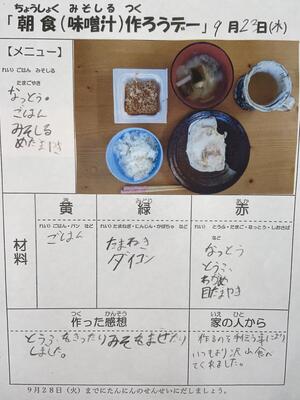 ちょうしょく みそしる つく
「朝食(味噌汁)作ろうデー」9月23日(水)
【メニュー】
れい)ごはん みそしる
たまごやき
なっとう。
ごはん
みそしる
めだまやき
材料
き
黄
れい)ごはん・パン など
ごはん
みどり
緑
れい)たまねぎ・にんじん・かぼちゃ など
たまねき
ダイコン
あか
赤
れい)とうふ・たまご・なっとう・しおさば
など
なっとう
とうふ、
わかめ
目だまやき
つく かんそう
作った感想
とうふをきったり みそをまぜたり
しました。
いえ ひと
家の人から
作るのを手伝う事により
いつもより沢山食べ
てくれました。
9月28日(火)までにたんにんのせんせいにだしましょう。